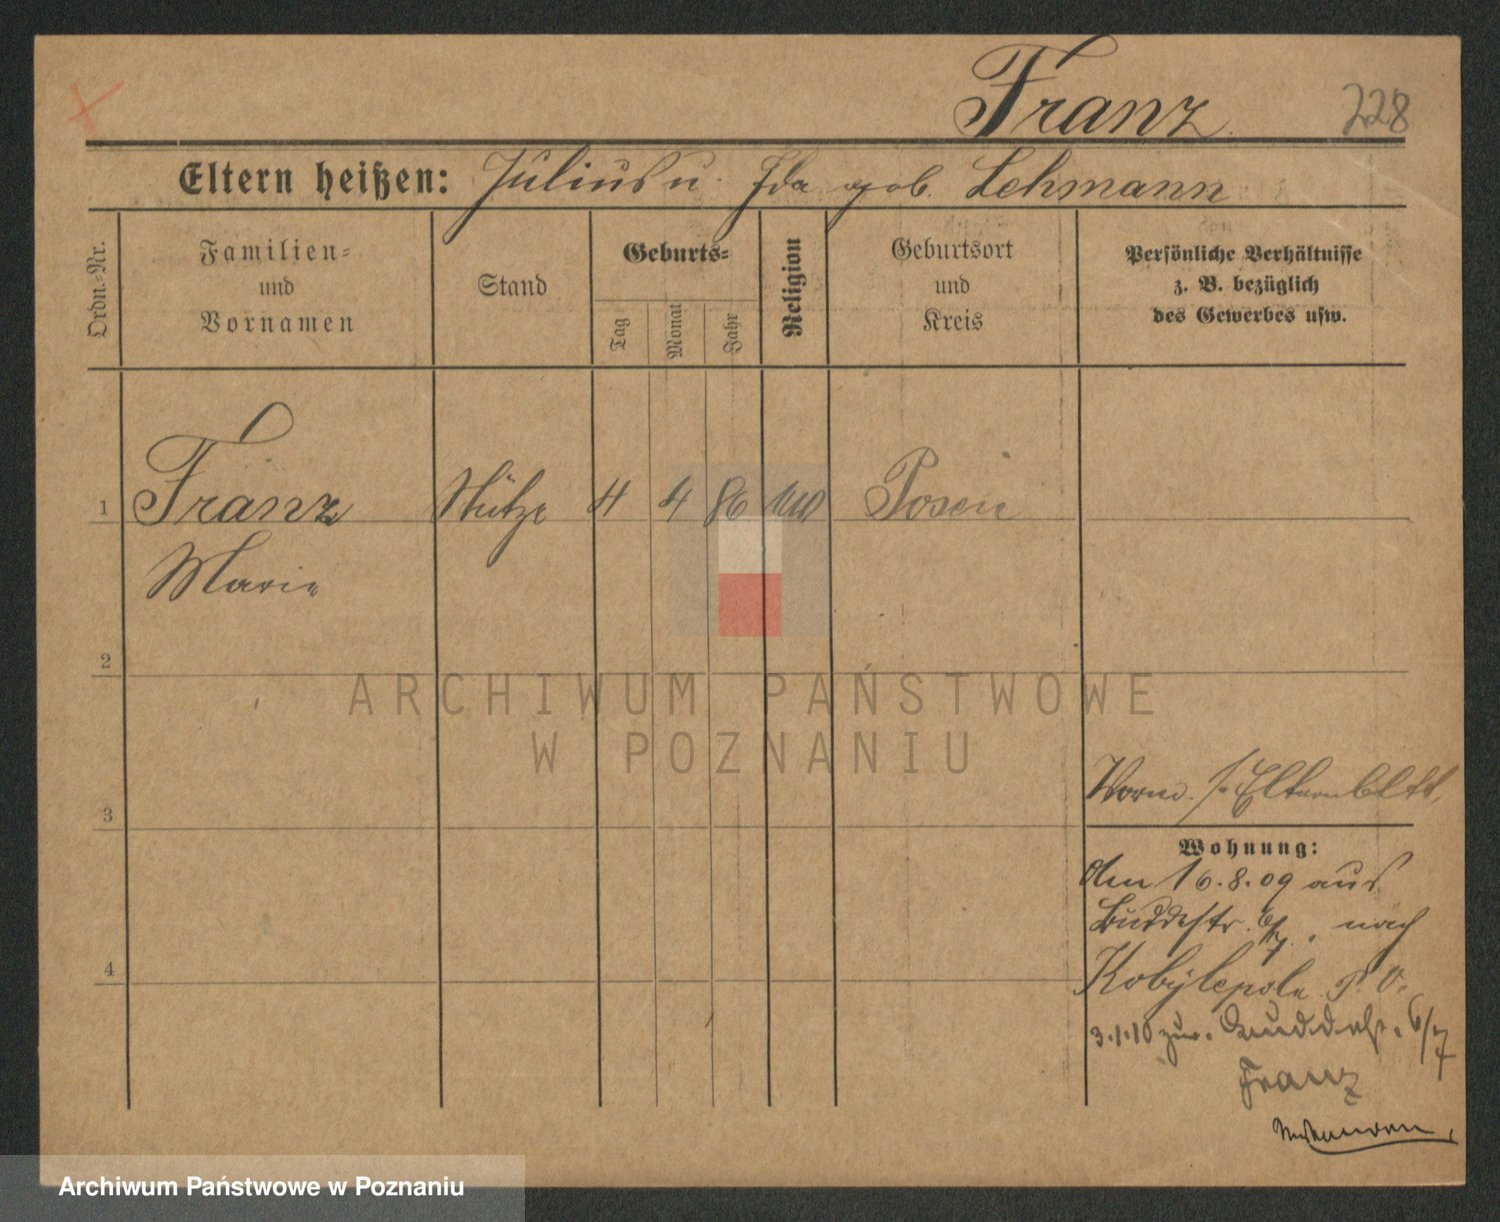 Franz. 228
Eltern heißen: Julius u. Ida geb. Lehmann
Ordn.-Nr.
Familien-
und
Vornamen
Stand
Geburts-
Tag
Monat
Jahr
Religion
Geburtsort
und
Kreis
Persönliche Verhältnisse
z. B. bezüglich
des Gewerbes usw.
1 Franz Stütze 4 4 86 Posen
Marie
2
ARCHIWUM PAŃSTWOWE
W POZNANIU
Elternblatt
3
Wohnung:
den 16.8.09 aus
Buddestr. 6/7. nach
4
Kobylepole P. O.
3.1.10 zur. Buddestr. 6/7
Franz
Archiwum Państwowe w Poznaniu